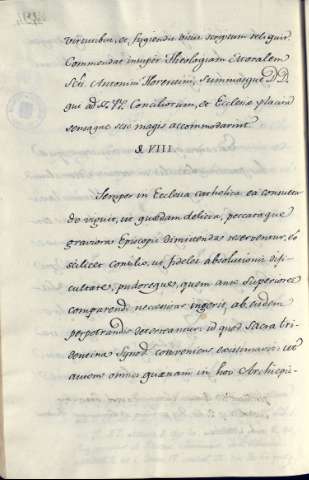 virtutibus, et fugiendis vitiis scriptum reliquit.
Commendat insuper Theologiam Moralem
Sti. Antonini Florentini, Summasque DD.
que ad S. Conciliorum, et Ecclesie placita
sensaque sese magis accommodarint.
§. VIII.
Semper in Ecclesia catholica ea consuetu
do viguit, ut quædam delicta, peccataque
graviora Episcopis dimittenda reserventur, eo
scilicet consilio, ut fideles absolutionis difi
cultate, pudoreque, quem ante Superiores
comparendi necessitas ingerit, ab eisdem
perpetrandis deterreantur, id quod Sacra tri
dentina Synod. conveniens existimavit: ut
autem omnes quænam in hoc Archiepis-